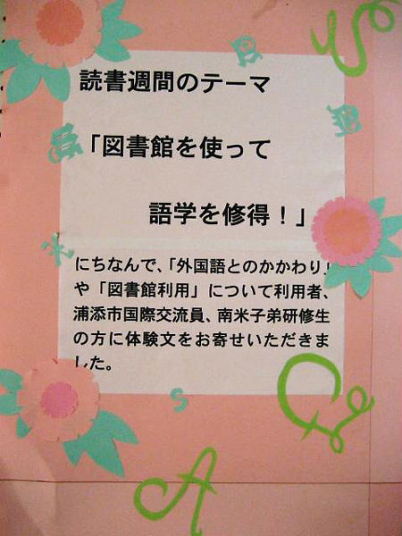 読書週間のテーマ
「図書館を使って
語学を修得！」
にちなんで、「外国語とのかかわり」
や「図書館利用」について利用者、
浦添市国際交流員、南米子弟研修生
の方に体験文をお寄せいただきま
した。
A